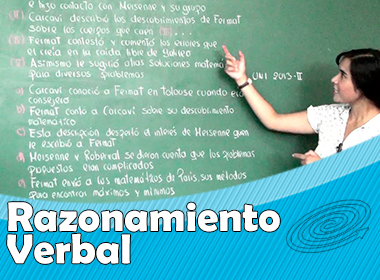 e hizo contacto con Mersenne y su grupo
Carcavi describió los descubrimientos de Fermat
sobre los cuerpos que caen
Fermat contestó y comentó los errores que
él creía en la caída libre de Galileo
Asimismo le sugirió otras soluciones matemá
para diversos problemas
UNI 2013-II
a) Carcavi conoció a Fermat en Tolouse cuando era
consejero
b) Fermat contó a Carcavi sobre su descubrimiento
matemático
c) Esta descripción despertó el interés de Mersenne quien
le escribió a Fermat
d) Mersenne y Roberval se dieron cuenta que los problemas
propuestos eran complicados
e) Fermat envió a los matemáticos de París, sus métodos
para encontrar máximos y mínimos
Razonamiento
Verbal